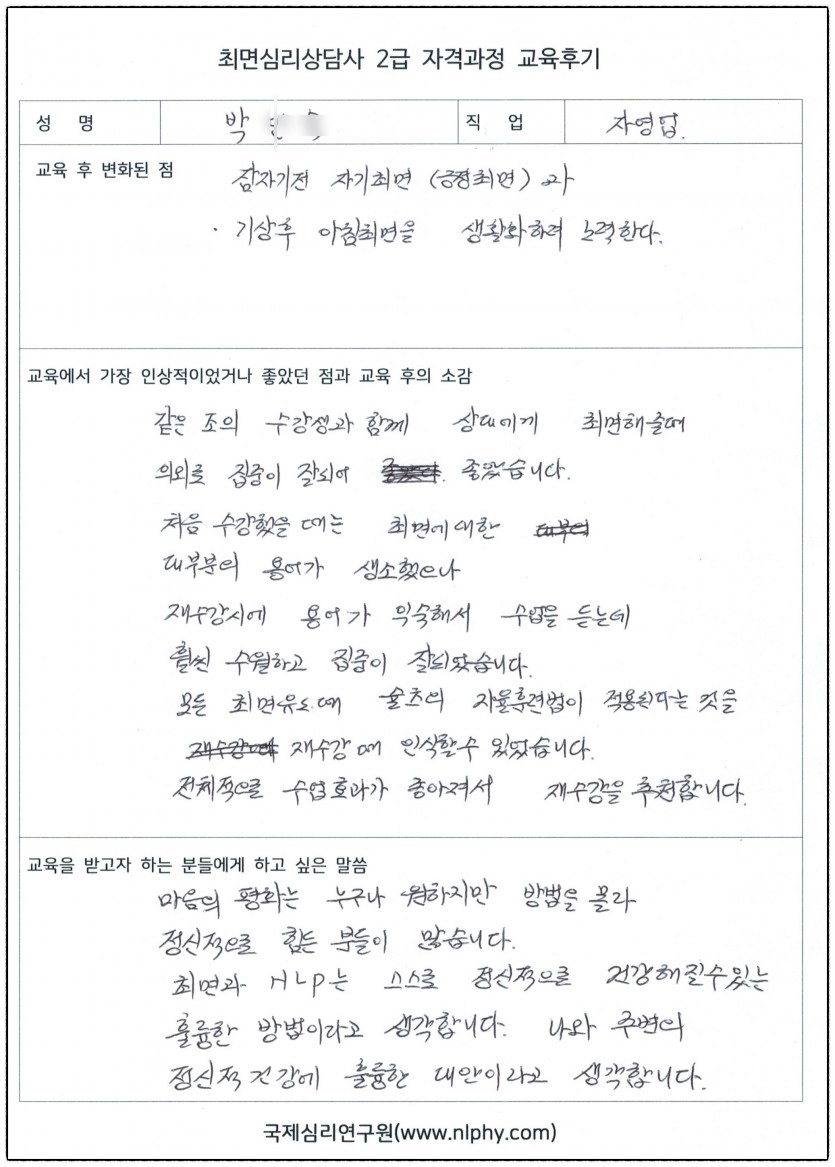 최면심리상담사 2급 자격과정 교육후기
성 명 박 직 업 자영업.
교육 후 변화된 점
잠자기전 자기최면 (긍정최면) 과
· 기상후 아침최면을 생활화하려 노력한다.
교육에서 가장 인상적이었거나 좋았던 점과 교육 후의 소감
같은 조의 수강생과 함께 상대에게 최면해줄때
의외로 집중이 잘되어 좋았습니다.
처음 수강했을 때는 최면에 대한
대부분의 용어가 생소했으나
재수강시에 용어가 익숙해서 수업을 듣는데
훨씬 수월하고 집중이 잘되었습니다.
모든 최면유도때 슐츠의 자율훈련법이 적용된다는 것을
재수강 때 인식할수 있었습니다.
전체적으로 수업효과가 좋아져서 재수강을 추천합니다.
교육을 받고자 하는 분들에게 하고 싶은 말씀
마음의 평화는 누구나 원하지만 방법을 몰라
정신적으로 힘든 분들이 많습니다.
최면과 NLP는 스스로 정신적으로 건강해질수있는
훌륭한 방법이라고 생각합니다. 나와 주변의
정신적 건강에 훌륭한 대안이라고 생각합니다.
국제심리연구원(www.nlphy.com)